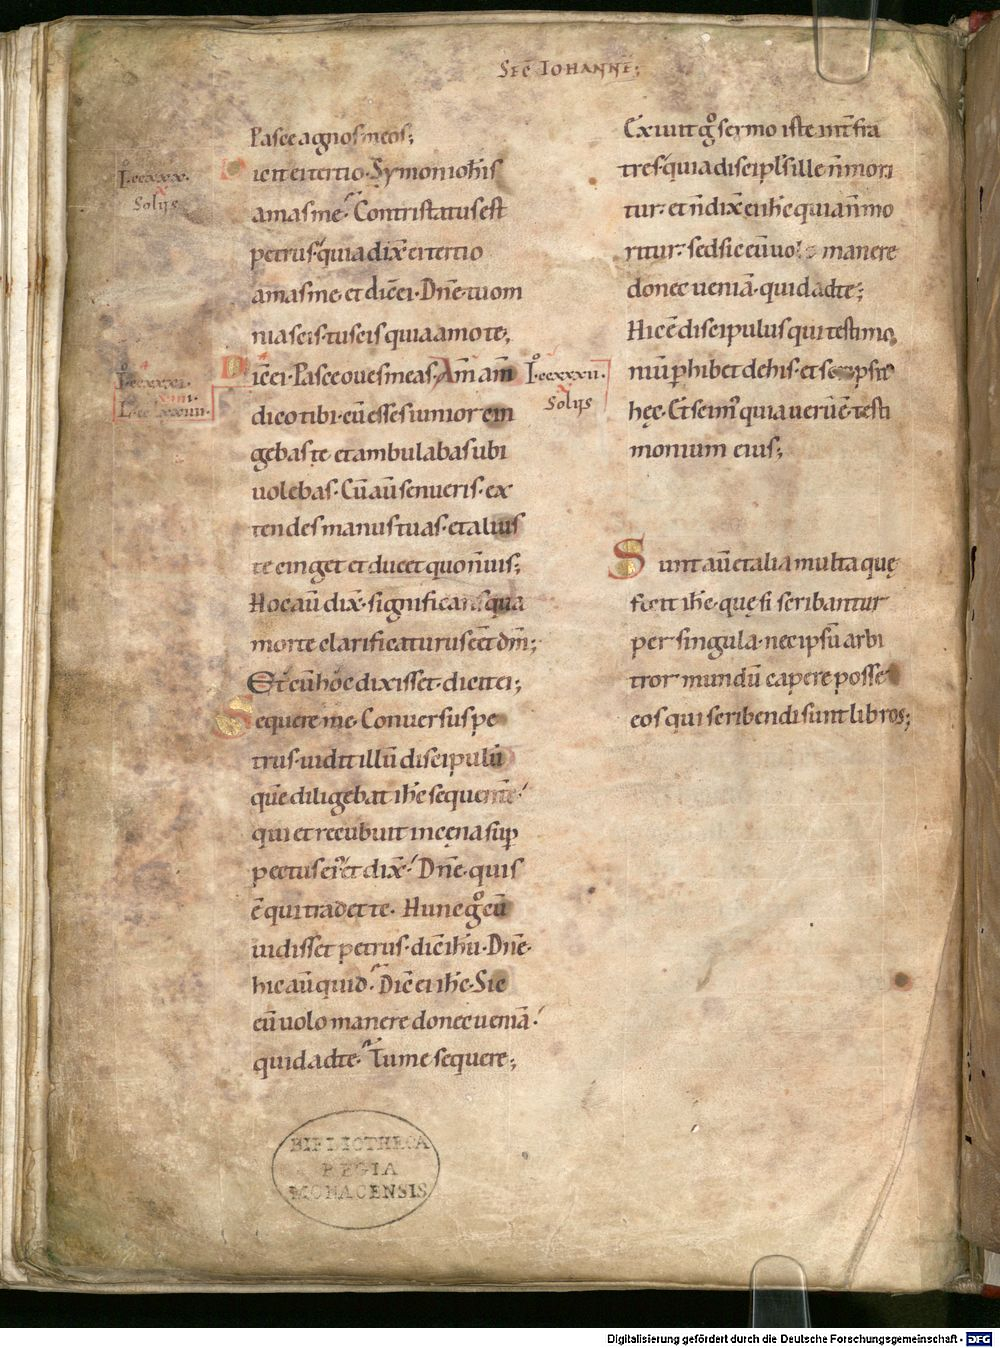 SEC̄ IOHANNE̅;
Pasce agnos meos;
Dicit ei tertio. Symon ioh̅is
amas me. Contristatus est
petrus. quia dix̅ ei tertio
amas me. et dic̅ ei. Dn̅e. tu om
nia scis. tu scis quia amo te;
Dic̅ ei. Pasce oues meas. Am̅ am̅
dico tibi. cu̅ esses iunior cin
gebas te et ambulabas ubi
uolebas. Cu̅ au̅ senueris. ex
tendes manus tuas. et alius
te cinget et ducet quo n̅ uis;
Hoc au̅ dix̅. significans qua
morte clarificaturus e̅et dm̅;
Et cu̅ hoc dixisset. dicit ei;
Sequere me. Conuersus pe
trus. uidit illu̅ discipulu̅
que̅ diligebat ih̅c sequente̅.
qui et recubuit in cęna sup̅
pectus ei᷒. et dix̅. Dn̅e. quis
e̅ qui tradet te. Hunc gͦ cu̅
uidisset petrus. dic̅ ih̅u. Dn̅e.
hic au̅ quid. Dic̅ ei ih̅c. Sic
eu̅ uolo manere donec uenia̅.
quid ad te. Tu me sequere;
I.ccxxx.
X
Solꝰ io̅
I.ccxxxi.
I.ccxxxii.
X
Solꝰ io̅
Exiuit gͦ sermo iste int̅ fra
tres. quia discipl̅s ille n̅ mori
tur. et n̅ dix̅ ei ih̅c quia n̅ mo
ritur. sed sic eu̅ uolo manere
donec uenia̅. quid ad te;
Hic e̅ discipulus qui testimo
niu̅ p̲hibet de his. et scripsit
hęc. Et scim᷒ quia ueru̅ e̅ testi
monium eius;
Sunt au̅ et alia multa quę
fecit ih̅c. quę si scribantur
per singula. nec ipsu̅ arbi
tror mundu̅ capere posse
eos qui scribendi sunt libros;
BIBLIOTHECA
REGIA
MONACENSIS
Digitalisierung gefördert durch die Deutsche Forschungsgemeinschaft - DFG